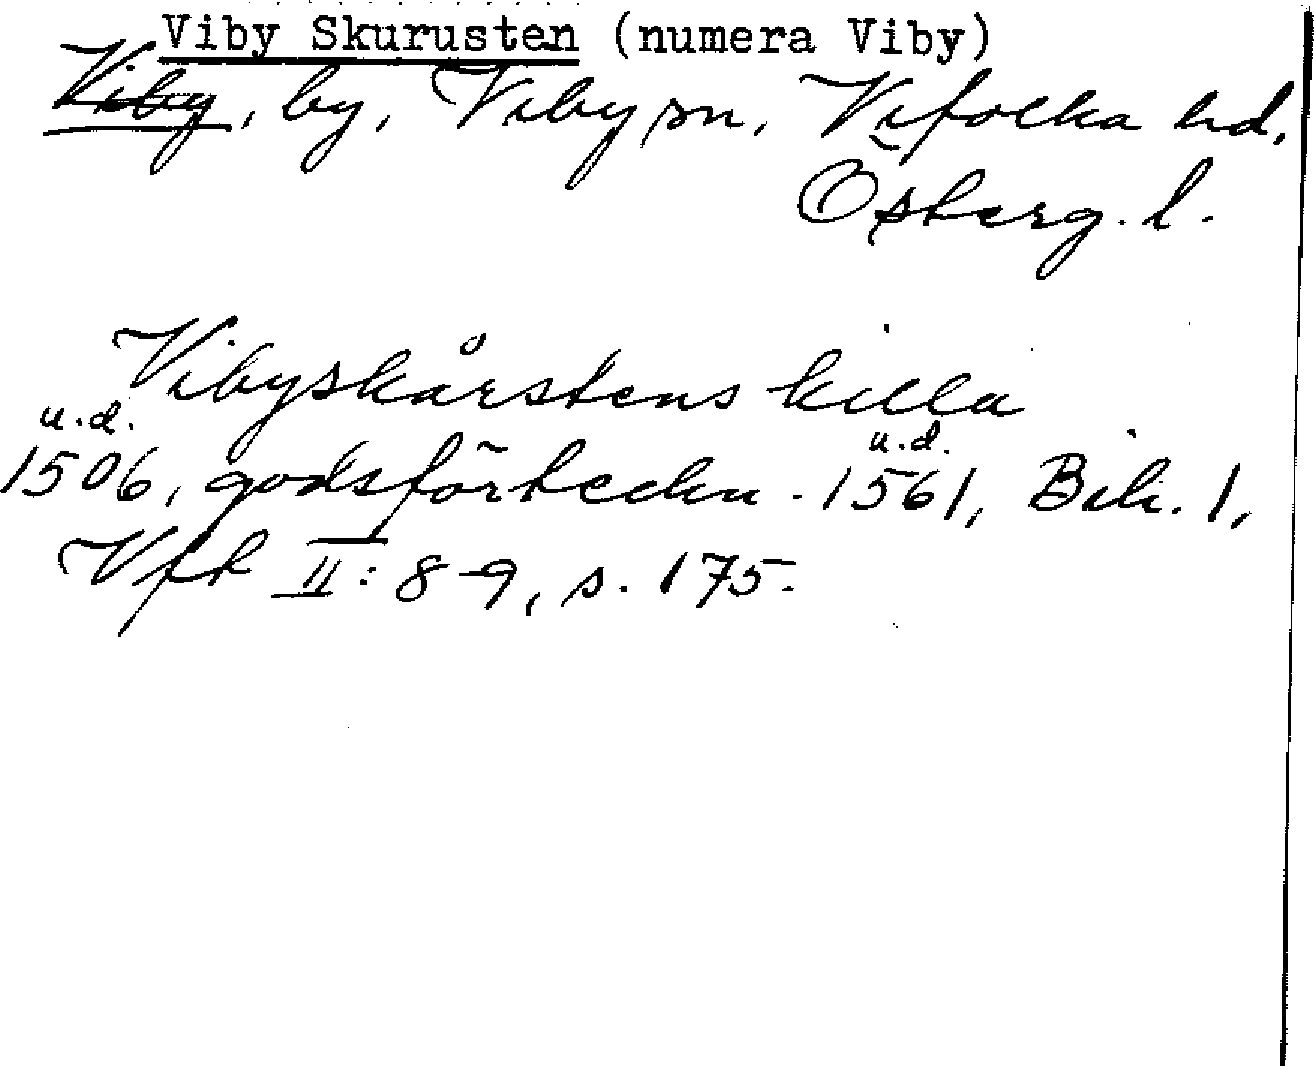 Viby Skurusten (numera Viby)
Viby, by, Viby sn, Vifolka hd,
Österg. l.
Vibyskårstens killa
u.d. u.d.
1506, godsförteckn. 1561, Bih. 1,
Vfk II: 8-9, s. 175.